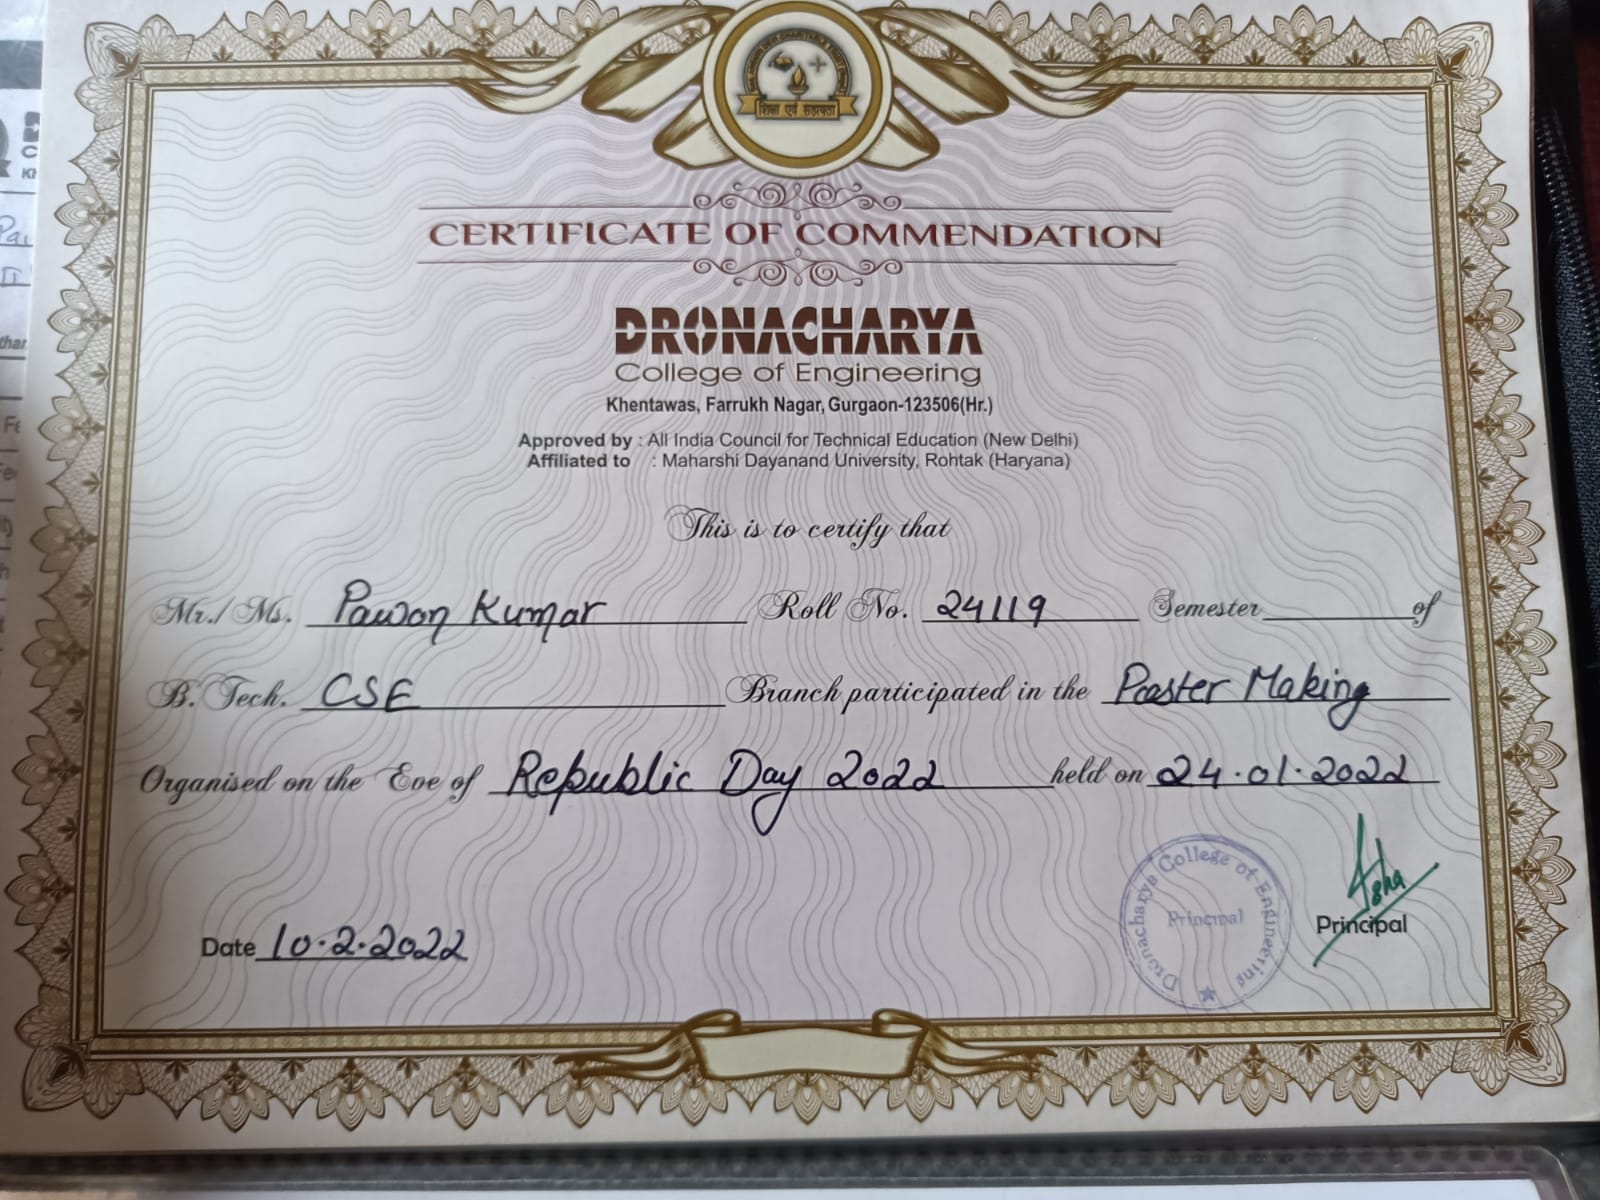 शिक्षा एवं सहायता
CERTIFICATE OF COMMENDATION
DRONACHARYA
College of Engineering
Khentawas, Farrukh Nagar, Gurgaon-123506(Hr.)
Approved by : All India Council for Technical Education (New Delhi)
Affiliated to : Maharshi Dayanand University, Rohtak (Haryana)
This is to certify that
Mr./ Ms. Pawan Kumar Roll No. 24119 Semester of
B. Tech. CSE Branch participated in the Poster Making
Organised on the Eve of Republic Day 2022 held on 24.01.2022
Dronacharya College of Engineering
Principal
Asha
Principal
Date 10.2.2022